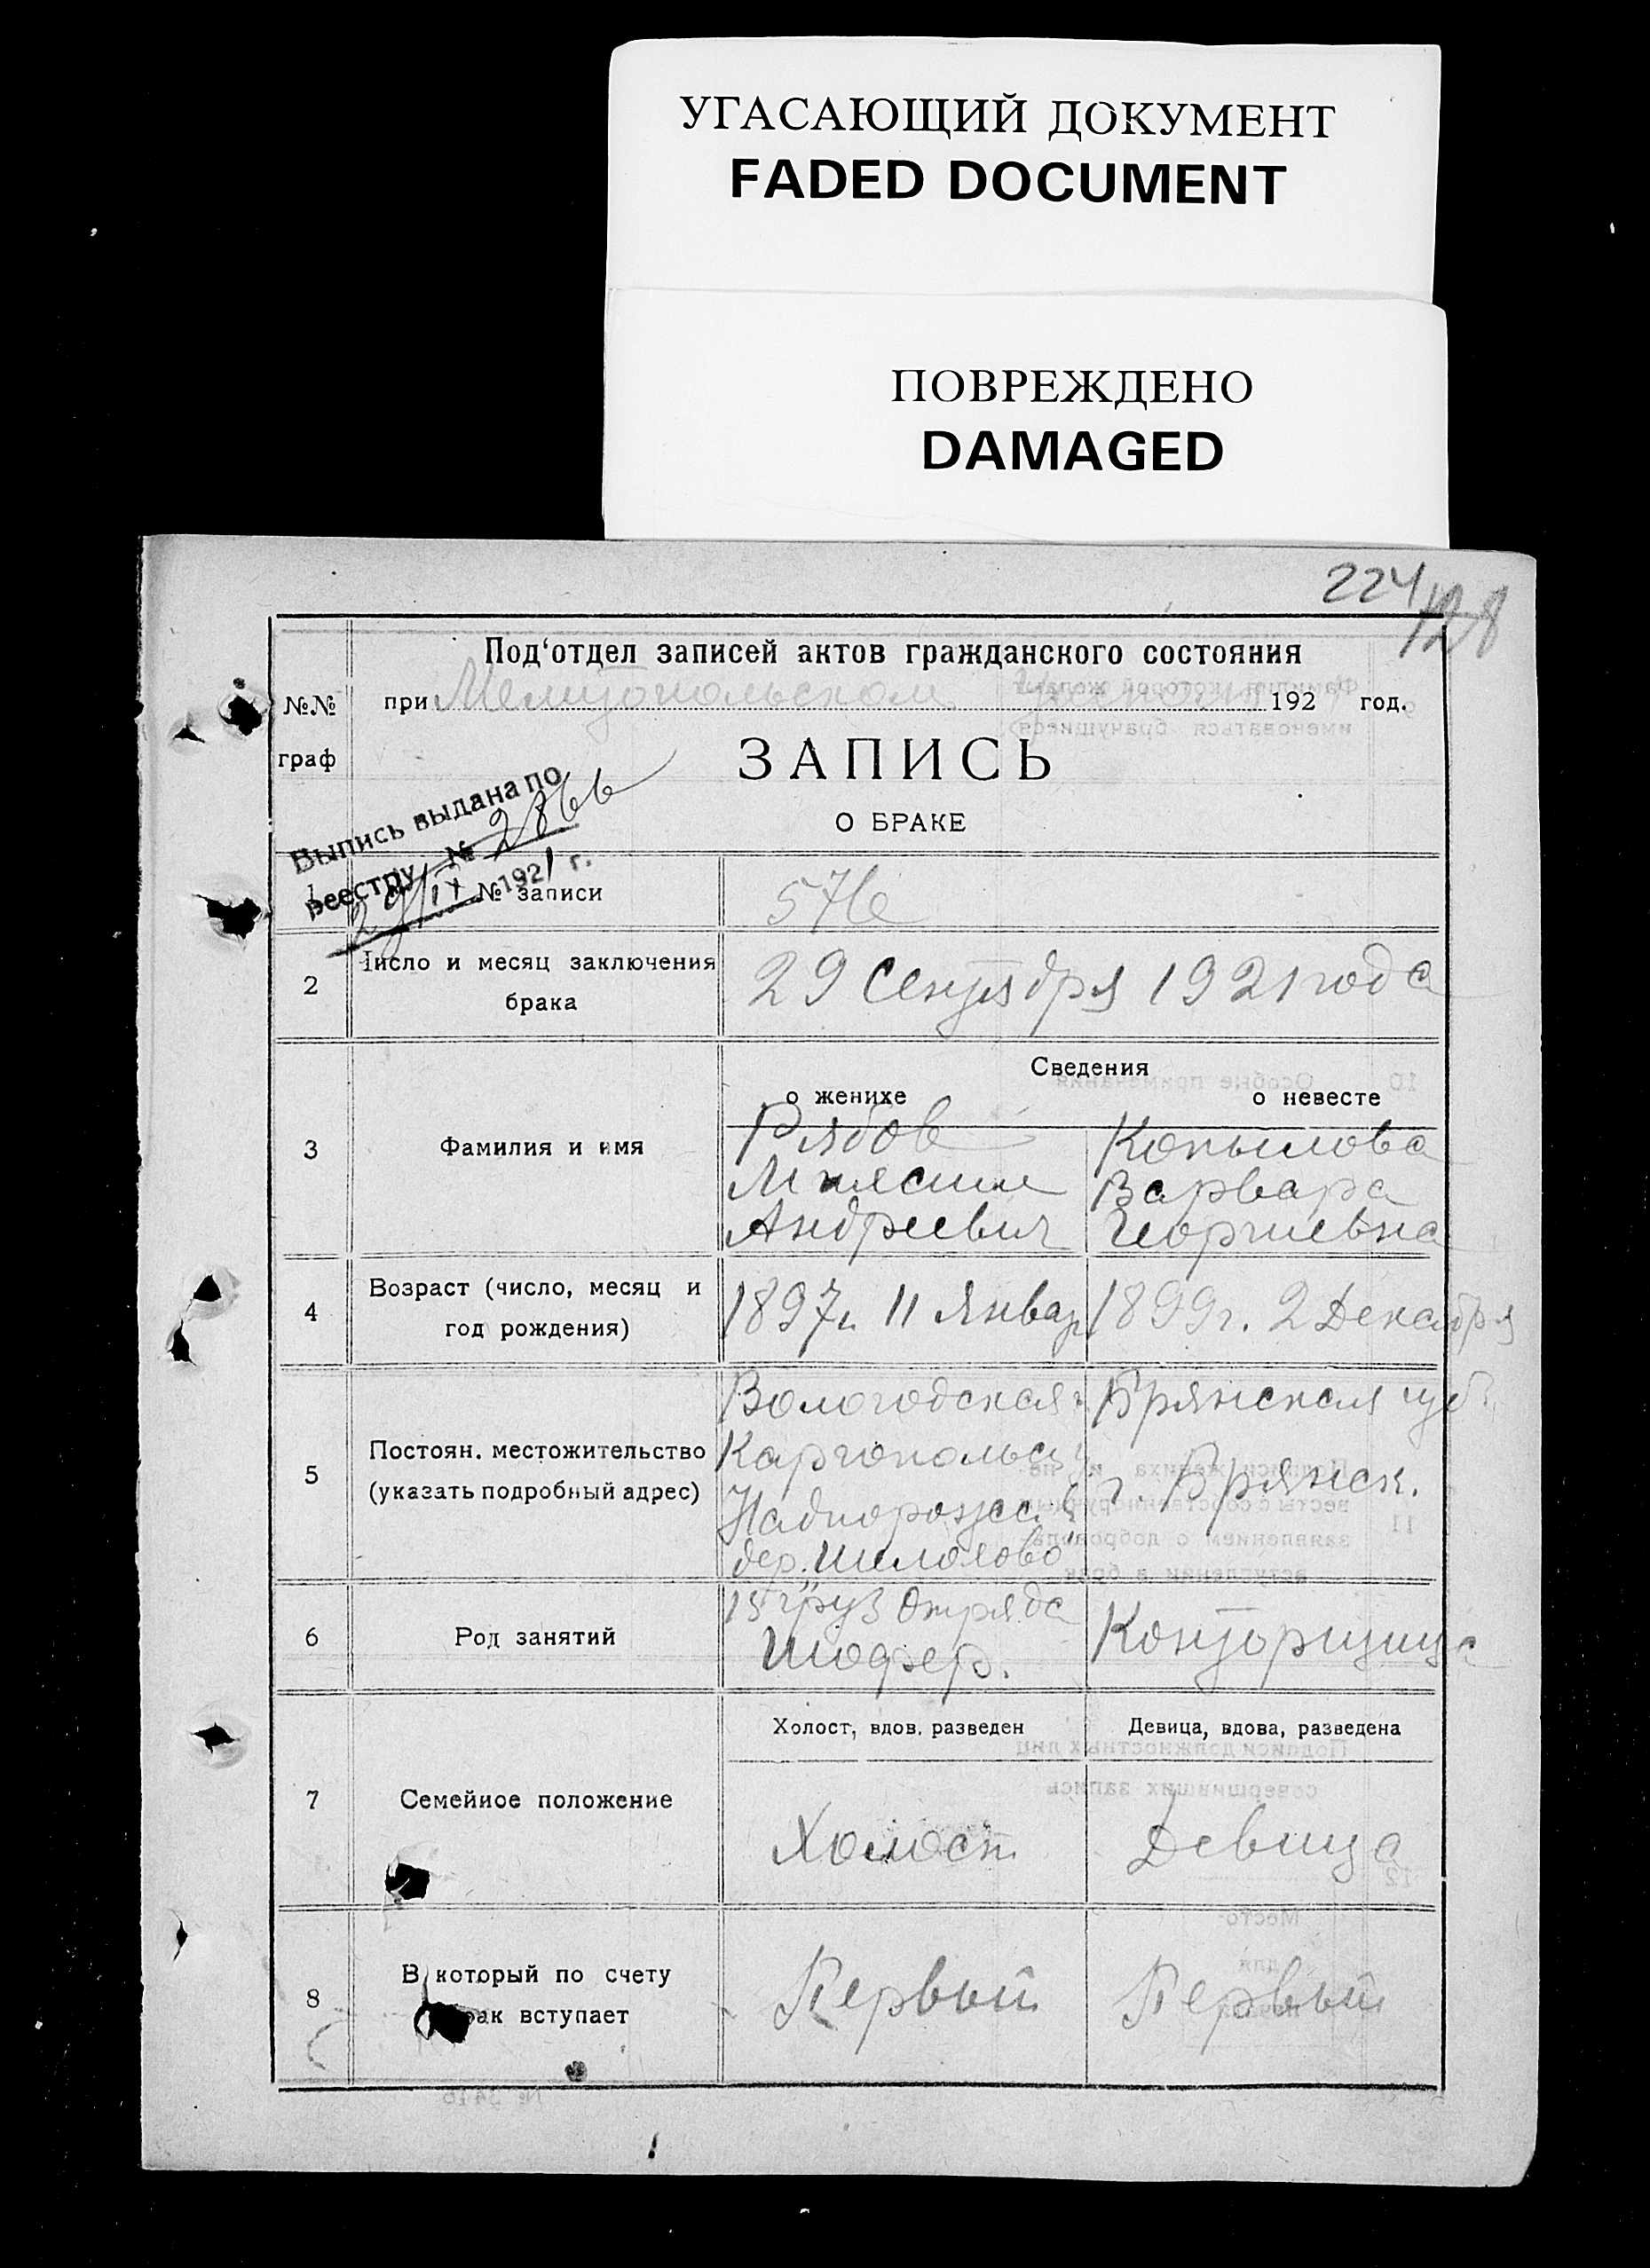 УГАСАЮЩИЙ ДОКУМЕНТ
FADED DOCUMENT
ПОВРЕЖДЕНО
DAMAGED
224
128
Под'отдел записей актов гражданского состояния
№№ граф
при Мелитопольском 192 год.
ЗАПИСЬ
О БРАКЕ
Выпись выдана по
реестру № 2866
29/IX 1921 г.
1 № записи
2 Число и месяц заключения брака 29 Сентября 1921 года
Сведения
о женихе о невесте
3 Фамилия и имя
Рябов Копылова
Варвара
Андреевич Георгиевна
4 Возраст (число, месяц и год рождения) 1897г. 11 Январ 1899г. 2 Декабря
5 Постоян. местожительство (указать подробный адрес)
Вологодская г. Брянская губ.
Каргопольск у г. Брянск.
Надпорожск. в
дер.
6 Род занятий
15 груз Отряда Конторщица
Шофер.
Холост, вдов. разведен Девица, вдова, разведена
7 Семейное положение Холост Девица
8 В который по счету брак вступает Первый Первый